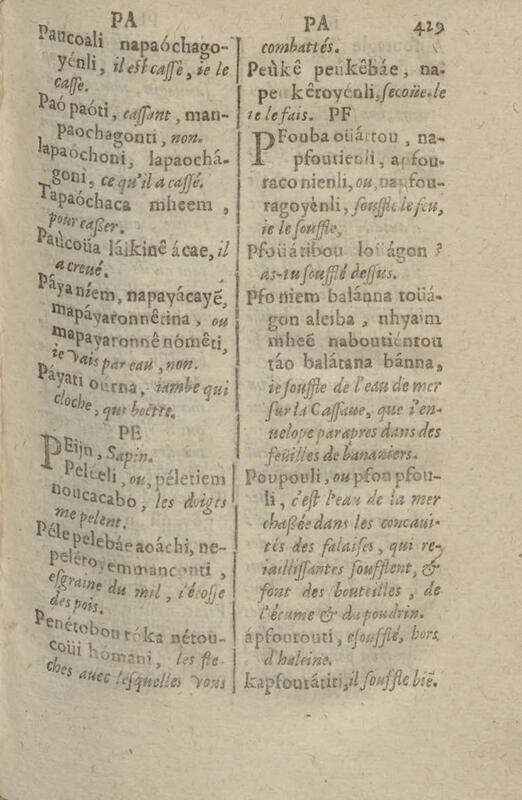 PA
Paucoali napaóchago-
yénli, il est cassé, ie le
casse.
Paó paóti, cassant, man-
paochagonti, non.
lapaóchoni, lapaochá-
goni, ce qu'il a cassé.
Tapaóchaca mheem,
pour casser.
Paùcoüa láikinê ácae, il
a creué.
Páya níem, napayácayẽ,
mapáyaronnêtina, ou
mapayaronnê nómêti,
ie vais par eau, non.
Páyati ourna, iambe qui
cloche, qui boëtte.
PE
PEijn, Sapin.
Pelleli, ou, péletiem
noucacabo, les doigts
me pelent.
Péle pelebáe aoáchi, ne-
peléroyemmanconti,
esgraine du mil, i'écosse
des pois.
Penétobou tóka nétou-
coüi hómani, les fle-
ches auec lesquelles vous
PA 429
combattés.
Peùkê peukêbáe, na-
peukêroyénli, secoüe-le
ie le fais. PF
PFouba oüáttou, na-
pfoutienli, apfou-
raconienli, ou, napfou-
ragoyénli, souffle le feu,
ie le souffle,
Pfoüátibou loüágon ?
as-tu soufflé dessus.
Pfoniem balánna toüá-
gon aleiba, nhyaim
mheẽ naboutientou
táo balátana bánna,
ie souffle de l'eau de mer
sur la Cassaue, que i'en-
uelope par apres dans des
feüilles de bananiers.
Poupouli, ou pfou pfou-
li, c'est l'eau de la mer
chassée dans les concaui-
tés des falaises, qui re-
iaillissantes soufflent, &
font des bouteilles, de
l'écume & du poudrin.
ápfourouti, esoufflé, hors
d'haleine.
kapfourátiti, il souffle biẽ.